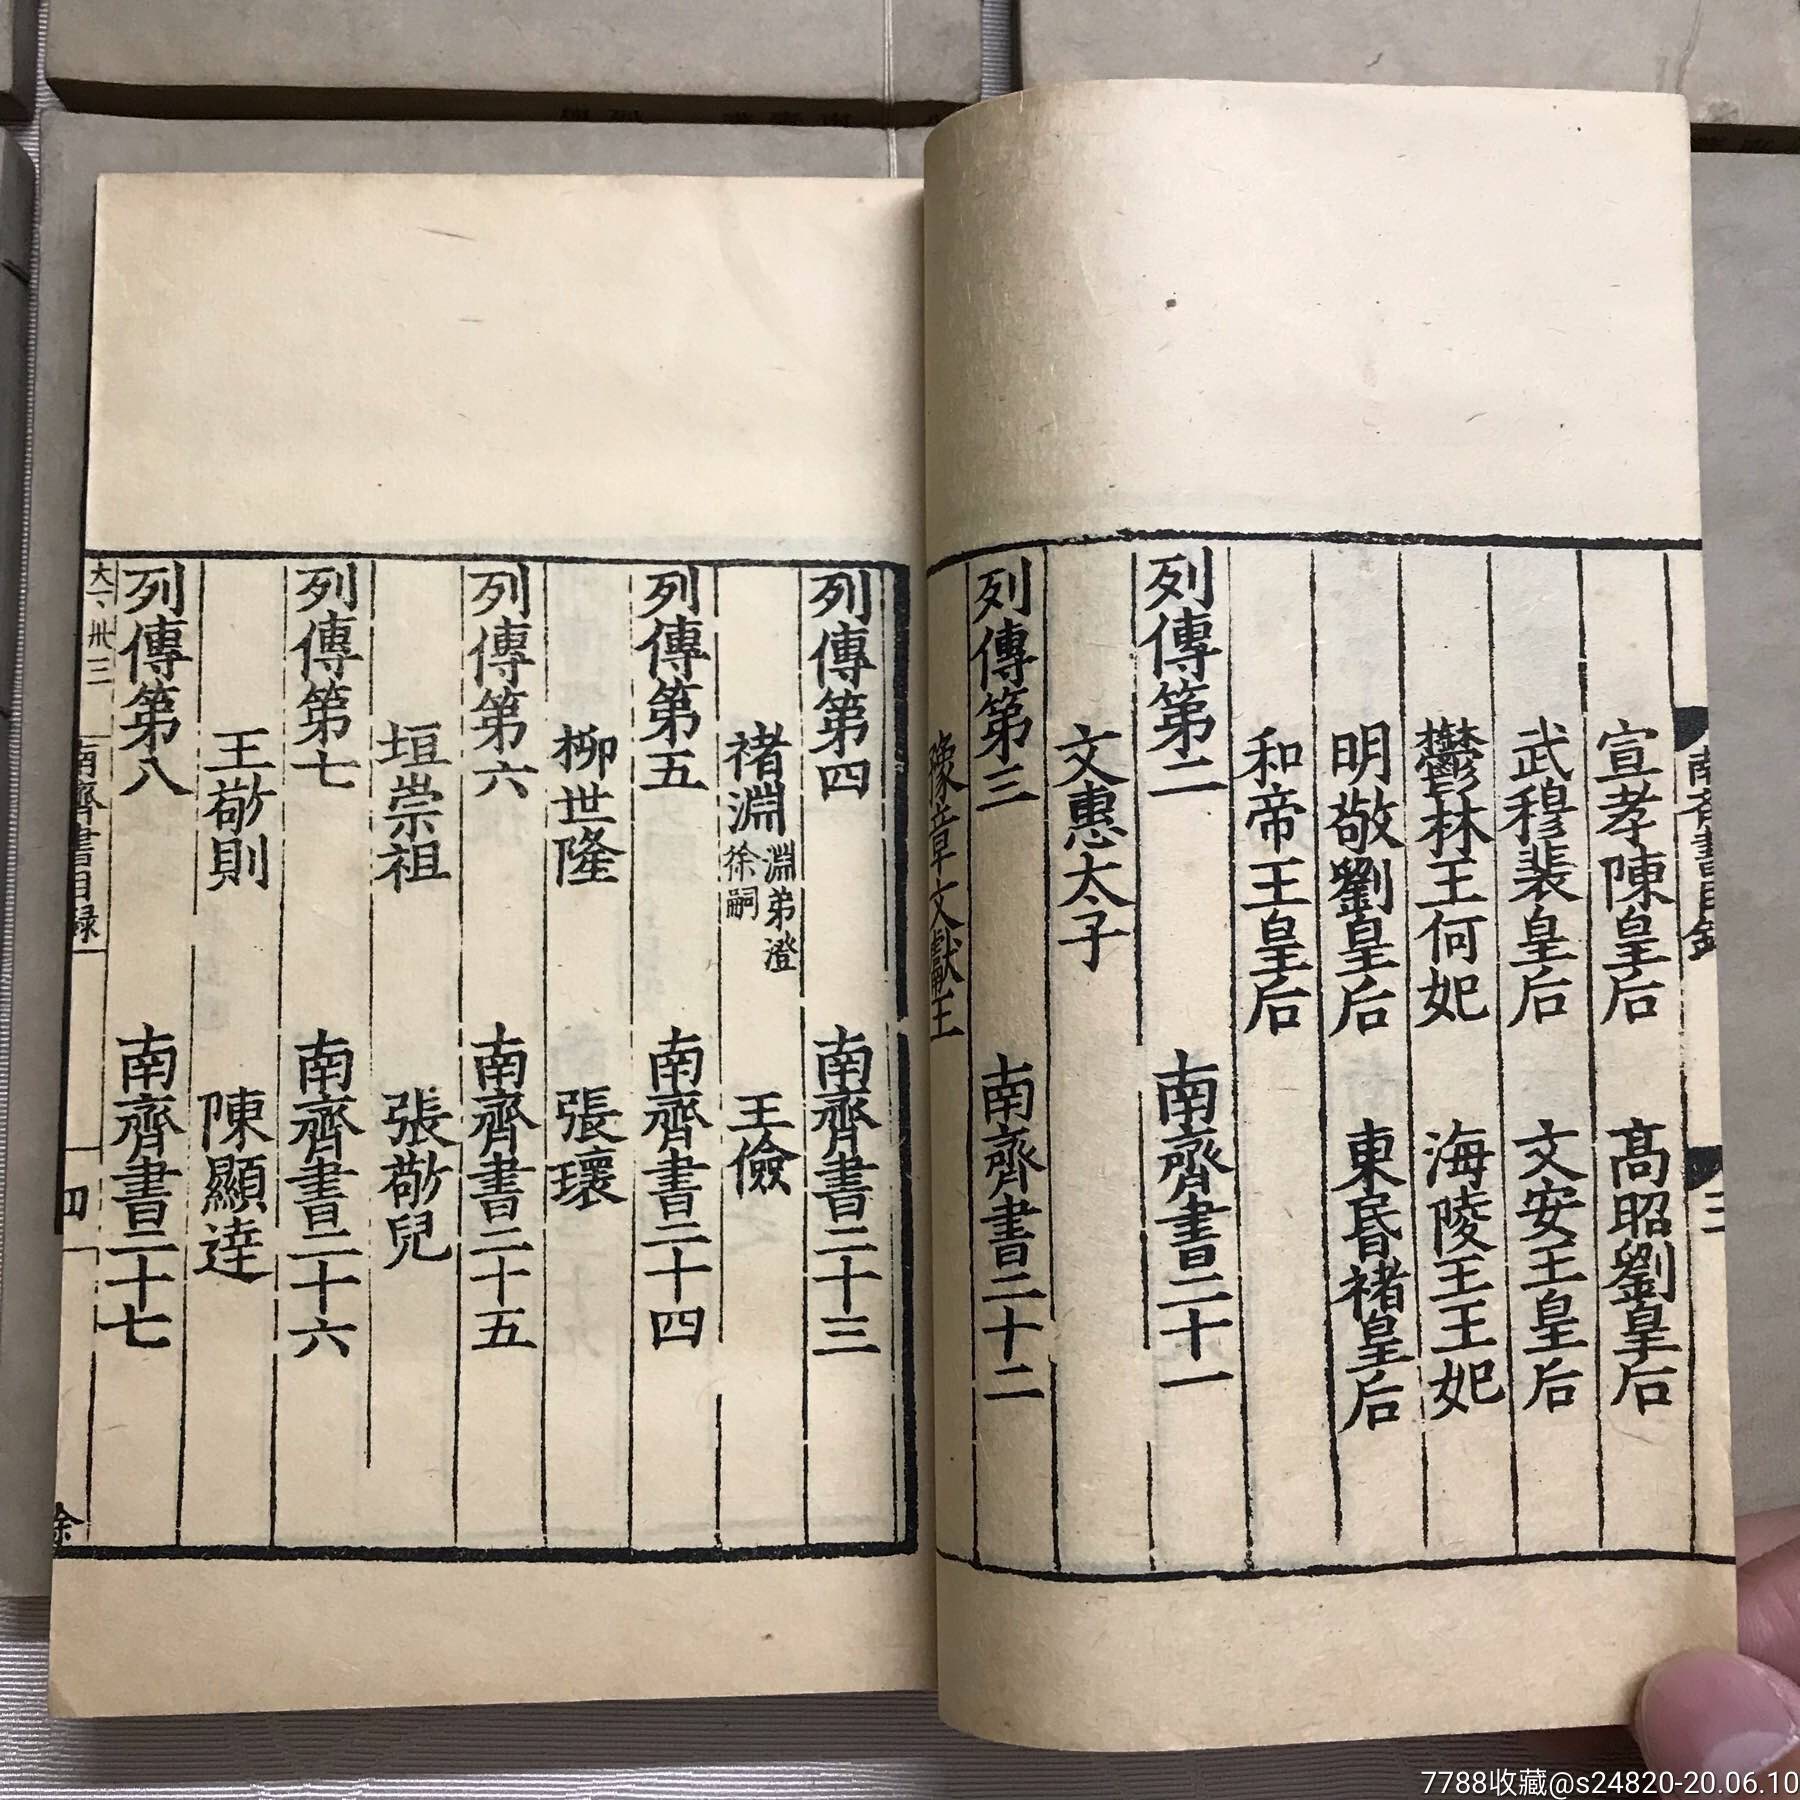 南齊書目錄 三
宣孝陳皇后 高昭劉皇后
武穆裴皇后 文安王皇后
鬱林王何妃 海陵王王妃
明敬劉皇后 東昬褚皇后
和帝王皇后
列傳第二 南齊書二十一
文惠太子
列傳第三 南齊書二十二
豫章文獻王
列傳第四 南齊書二十三
褚淵 淵弟澄 徐嗣 王儉
列傳第五 南齊書二十四
柳世隆 張瓌
列傳第六 南齊書二十五
垣崇祖 張敬兒
列傳第七 南齊書二十六
王敬則 陳顯達
列傳第八 南齊書二十七
南齊書目録 四
徐
7788收藏@s24820-20.06.10